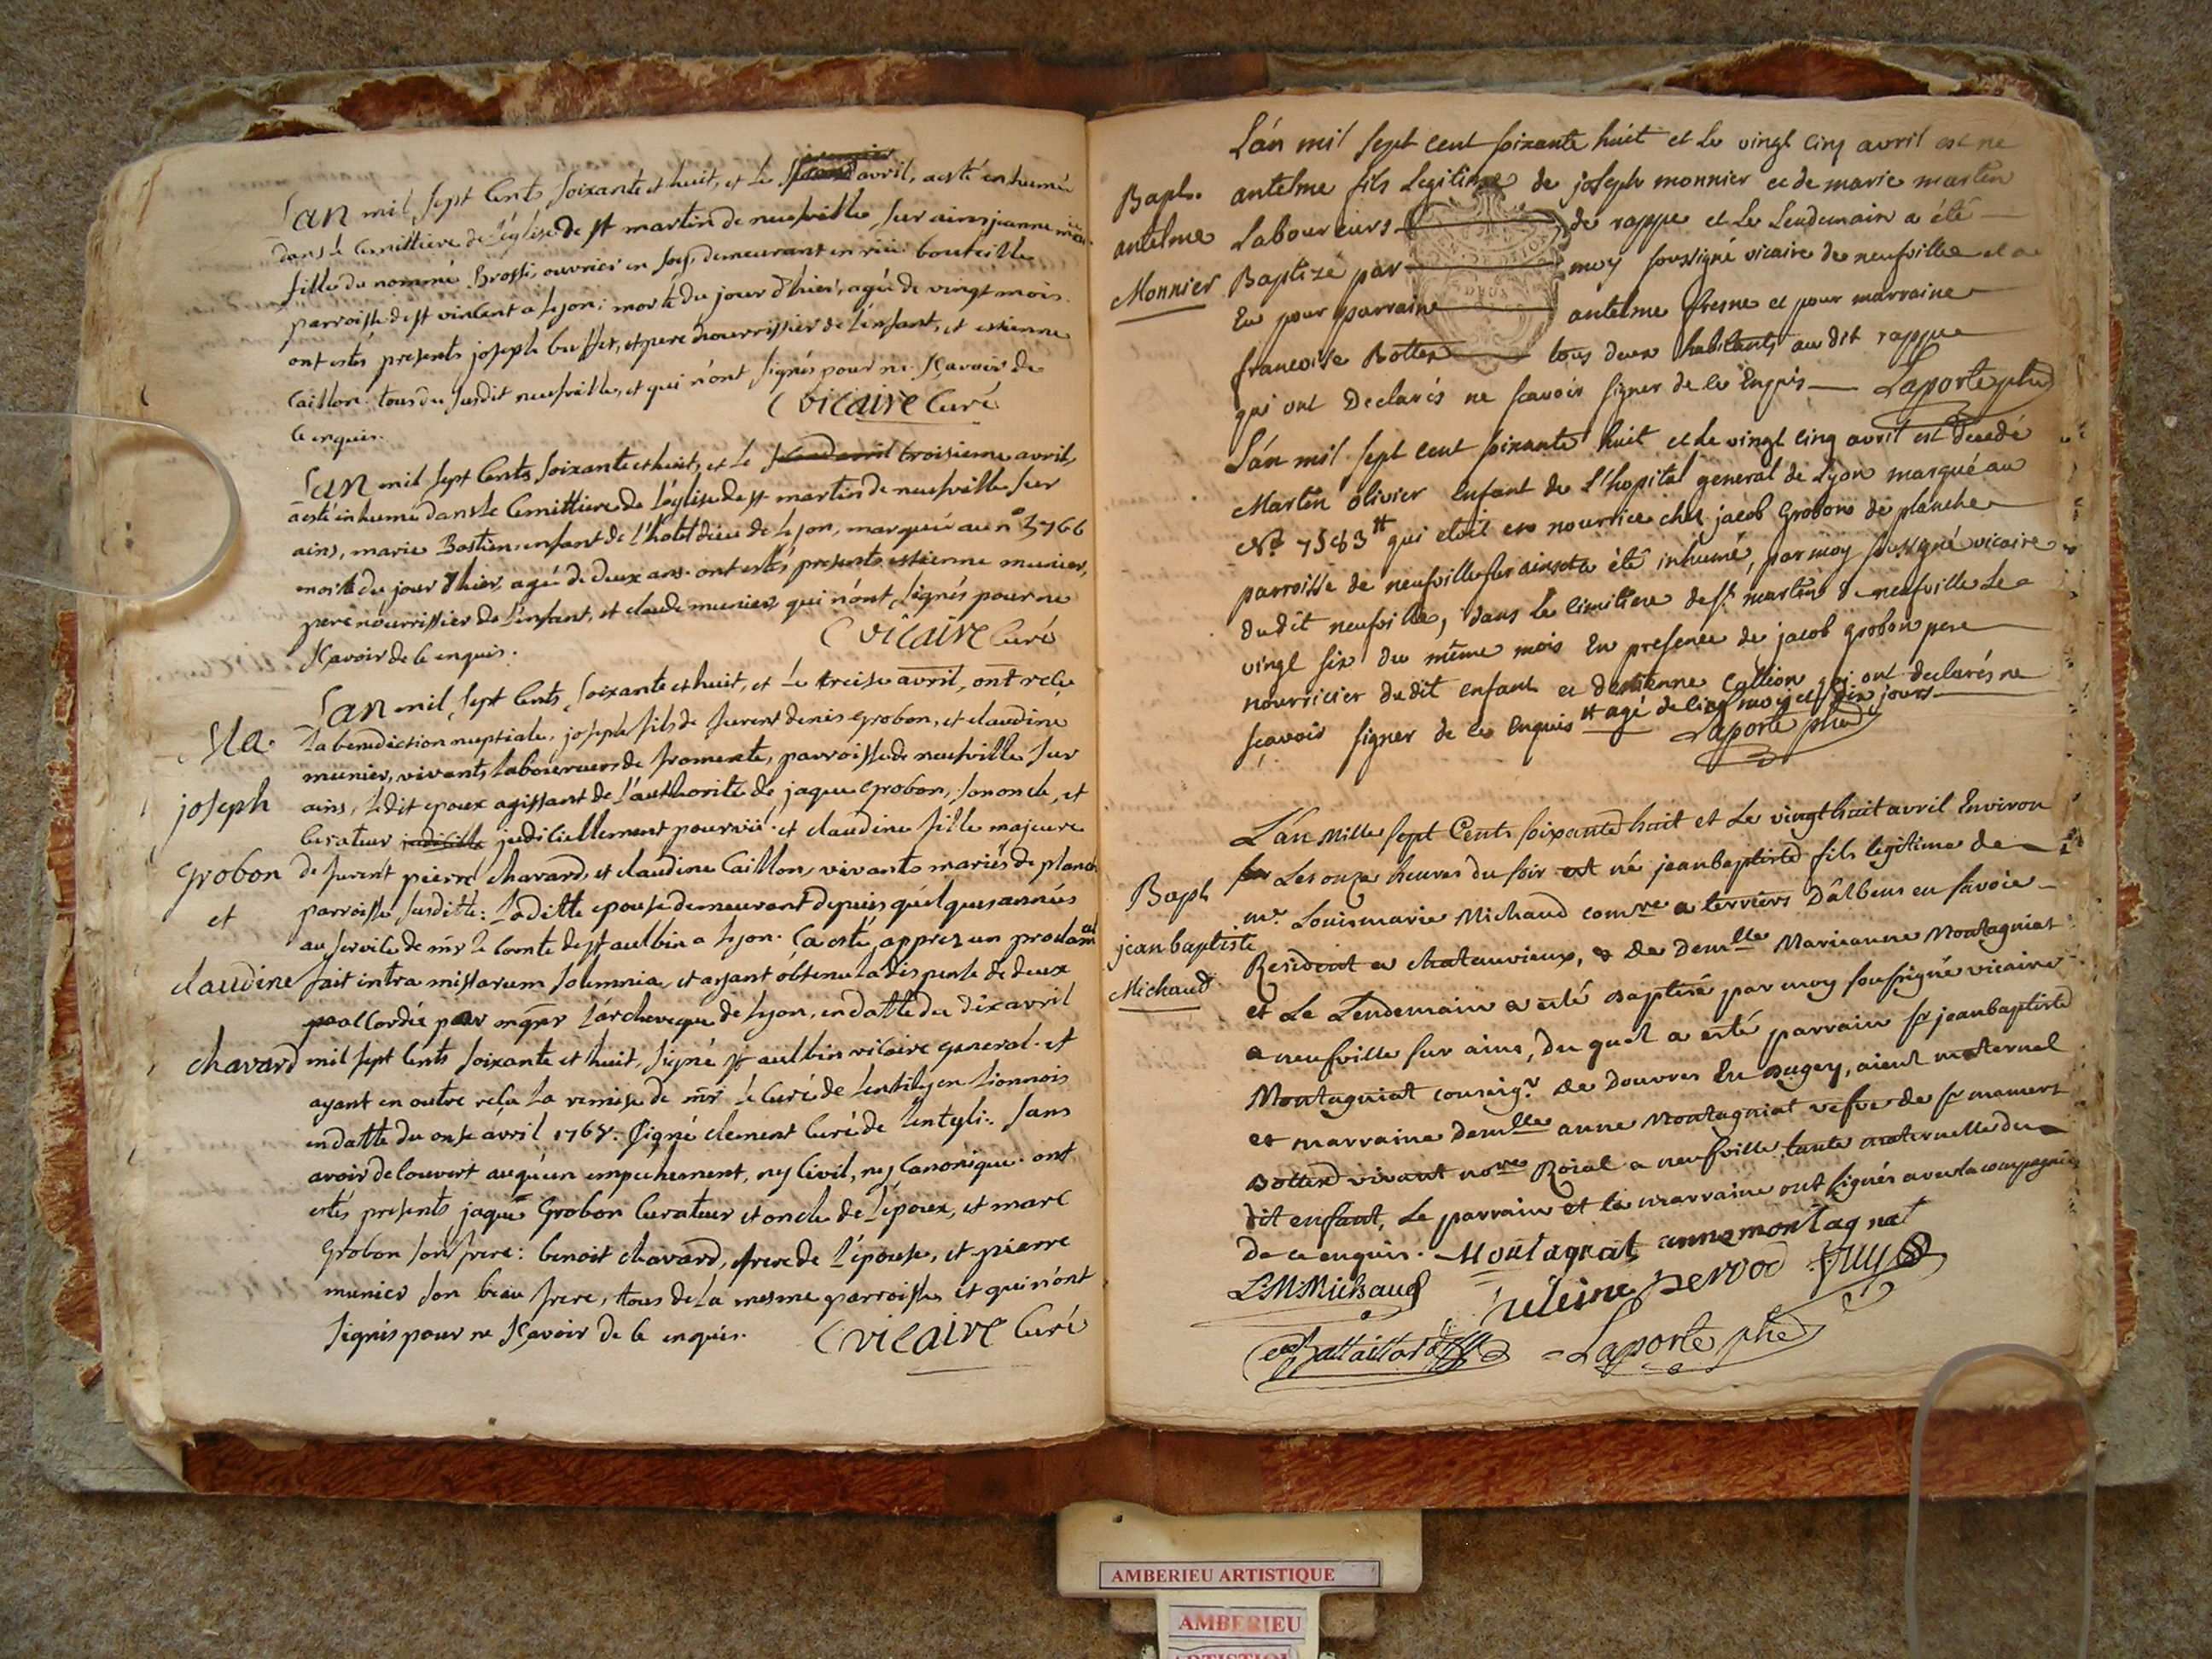 L'an mil sept cents soixante et huit, et le avril, a esté inhumée
dans le cemittiere de l'église de st martin de neufville sur ains jeanne
fille du nommé Brossi, ouvrier en soy, demeurant en rüe bouteille
parroisse de st vincent a lyon, morte du jour d'hier, agée de vingt mois.
ont estés presents joseph buffet, et pere nourrissier de l'enfant, et estienne
Caillon. tous du susdit neufville, et qui n'ont signés pour ne sçavoir de
ce enquis.
C vicaire Curé
L'an mil sept cents soixante et huit, et le second avril troisieme avril,
a esté inhumé dans le cemittiere de l'église de st martin de neufville sur
ains, marie Bastien enfant de l'hotel dieu de lyon, marquée au n° 3766
morte du jour d'hier, agée de deux ans. ont estés presents estienne munier,
pere nourrissier de l'enfant, et claude munier qui n'ont signés pour ne
sçavoir de ce enquis.
C vicaire Curé
Ma.
joseph
Grobon
et
claudine
chavard
L'an mil sept cents soixante et huit, et le treise avril, ont reçu
la benediction nuptiale, joseph fils de furent denis grobon, et claudine
munier, vivants laboureurs de fromente, parroisse de neufville sur
ains, ledit epoux agissant de l'authorité de jaque grobon, son oncle, et
curateur judiciellement pourvû. et claudine fille majeure
de furent pierre chavard, et claudine Caillon, vivants mariés de planche
parroisse susditte: laditte epouse demeurant depuis quélques années
au service de mr le comte de st aulbin a lyon. Ca esté apprez un proclamat
fait intra missarum solemnia, et ayant obtenu la dispense de deux
accordée par mgr l'archeveque de lyon, en datte du dix avril
mil sept cents soixante et huit, signé st aulbin vicaire general. et
ayant en outre reçu la remise de mr le Curé de lentily en lionnois
en datte du onse avril 1768. signé clement Curé de lentyli. sans
avoir decouvert auqu'un empechement, ny Civil, ny Canonique. ont
estés presents jaque Grobon curateur et oncle de l'époux, et marc
Grobon son frere: benoit chavard, frere de l'épouse, et pierre
munier son beau frere, tous de la mesme parroisse et qui n'ont
signés pour ne sçavoir de ce enquis.
C vicaire Curé
Bapt.
antelme
Monnier
L'an mil sept cent soixante huit et le vingt cinq avril est ne
antelme fils legitime de joseph monnier et de marie martin
Laboureurs de rappe et le Lendemain a été
Baptizé par moy soussigné vicaire de neufville et a
Eu pour parrain antelme fresne et pour marraine
francoise Bottex tous deux habitants au dit rappe
qui ont Declarés ne scavoir signer de ce Enquis Laporte ptre
L'an mil sept cent soixante huit et le vingt cinq avril est decedé
Martin olivier Enfant de l'hopital general de Lyon marqué au
N° 7583 qui etoit en nourrice chez jacob Grobon de planche
parroisse de neufville sur ains et a été inhumé, par moy soussigné vicaire
dudit neufville, dans le cimitiere de st martin de neufville le
vingt six du même mois En presence de jacob grobon pere
nourricier dudit enfant et d'estienne Callion qui ont declarés ne
sçavoir signer de ce Enquis agé de cinq mois et dix jours
Laporte ptre
Bapt
jean baptiste
Michaud
L'an Mille sept Cents soixante huit et le vingt huit avril Environ
Les onze heures du soir est né jean baptiste fils legitime de
mr. Louis marie Michaud comre a terriers D'albens en savoie
Resident a chatauvieux, & de demlle Marieanne Montagniat
et le Lendemain a esté Baptisé par moy sousigné vicaire
a neufville sur ains, du quel a esté parrain sr jean baptiste
Montagniat conseigr. de Douvres En Bugey, aieul maternel
et marraine demlle anne Montagniat vefve de sr mamert
Bottex vivant nore Roial a neufville tante maternelle du
dit enfant, Le parrain et la marraine ont signés avec la compagnie
De ce enquis. Montagnat anne montagnat
L M Michaud
Battaillard
Laporte ptre
AMBERIEU ARTISTIQUE
AMBERIEU
ARTISTIQUE